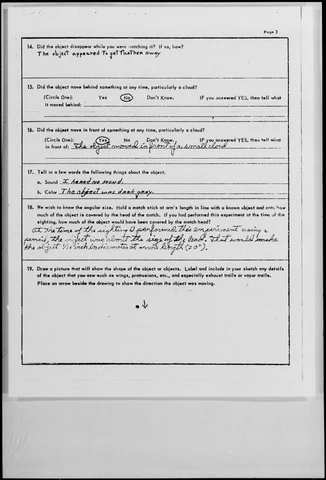 Page 3
14. Did the object disappear while you were watching it? If so, how?
The object appeared to get farther away
15. Did the object move behind something at any time, particularly a cloud?
(Circle One): Yes No Don't Know. IF you answered YES, then tell what
it moved behind:
16. Did the object move in front of something at any time, particularly a cloud?
(Circle One): Yes No Don't Know. IF you answered YES, then tell what
in front of: The object moved in front of a small cloud
17. Tell in a few words the following things about the object.
a. Sound I heard no sound.
b. Color The object was dark gray.
18. We wish to know the angular size. Hold a match stick at arm's length in line with a known object and note how
much of the object is covered by the head of the match. If you had performed this experiment at the time of the
sighting, how much of the object would have been covered by the match head?
At the time of the sighting I performed this experiment using a
pencil, the object was about the size of the lead. That would make
the object inch in diameter at arms length (20").
19. Draw a picture that will show the shape of the object or objects. Label and include in your sketch any details
of the object that you saw such as wings, protrusions, etc., and especially exhaust trails or vapor trails.
Place an arrow beside the drawing to show the direction the object was moving.